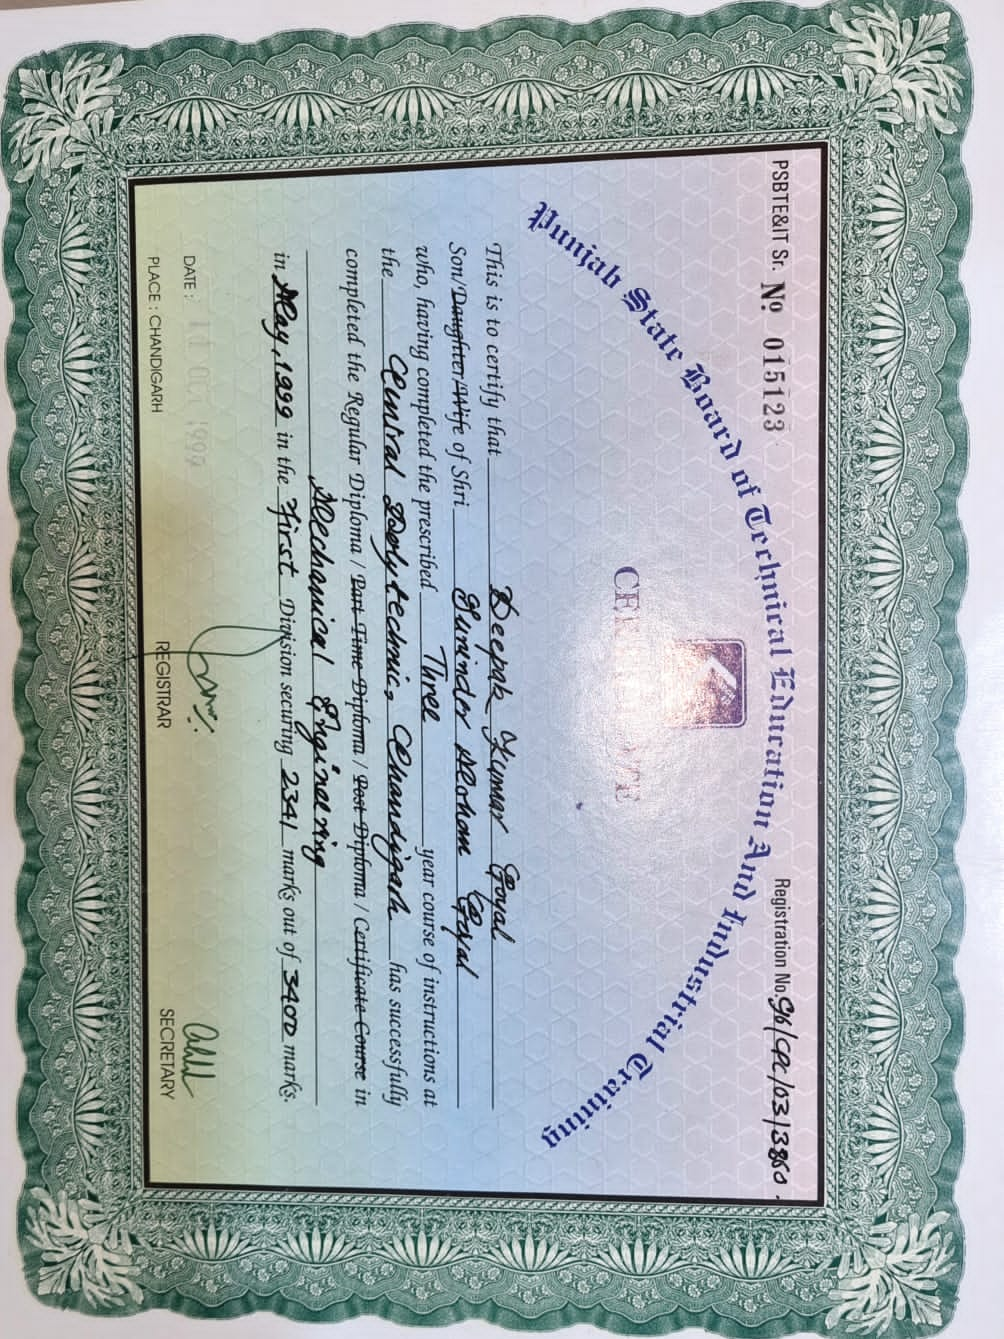 PSBTE&IT Sr. No 015123
Registration No. 96/CPC/03/3860.
Punjab State Board of Technical Education And Industrial Training
This is to certify that Deepak Kumar Goyal
Son/Daughter/Wife of Shri Surinder Mohan Goyal
who, having completed the prescribed Three year course of instructions at
the Central Polytechnic, Chandigarh has successfully
completed the Regular Diploma / Part Time Diploma / Post Diploma / Certificate Course in
Mechanical Engineering
in May, 1999 in the First Division securing 2341 marks out of 3400 marks.
DATE : 11 OCT 1999
PLACE : CHANDIGARH
REGISTRAR
SECRETARY